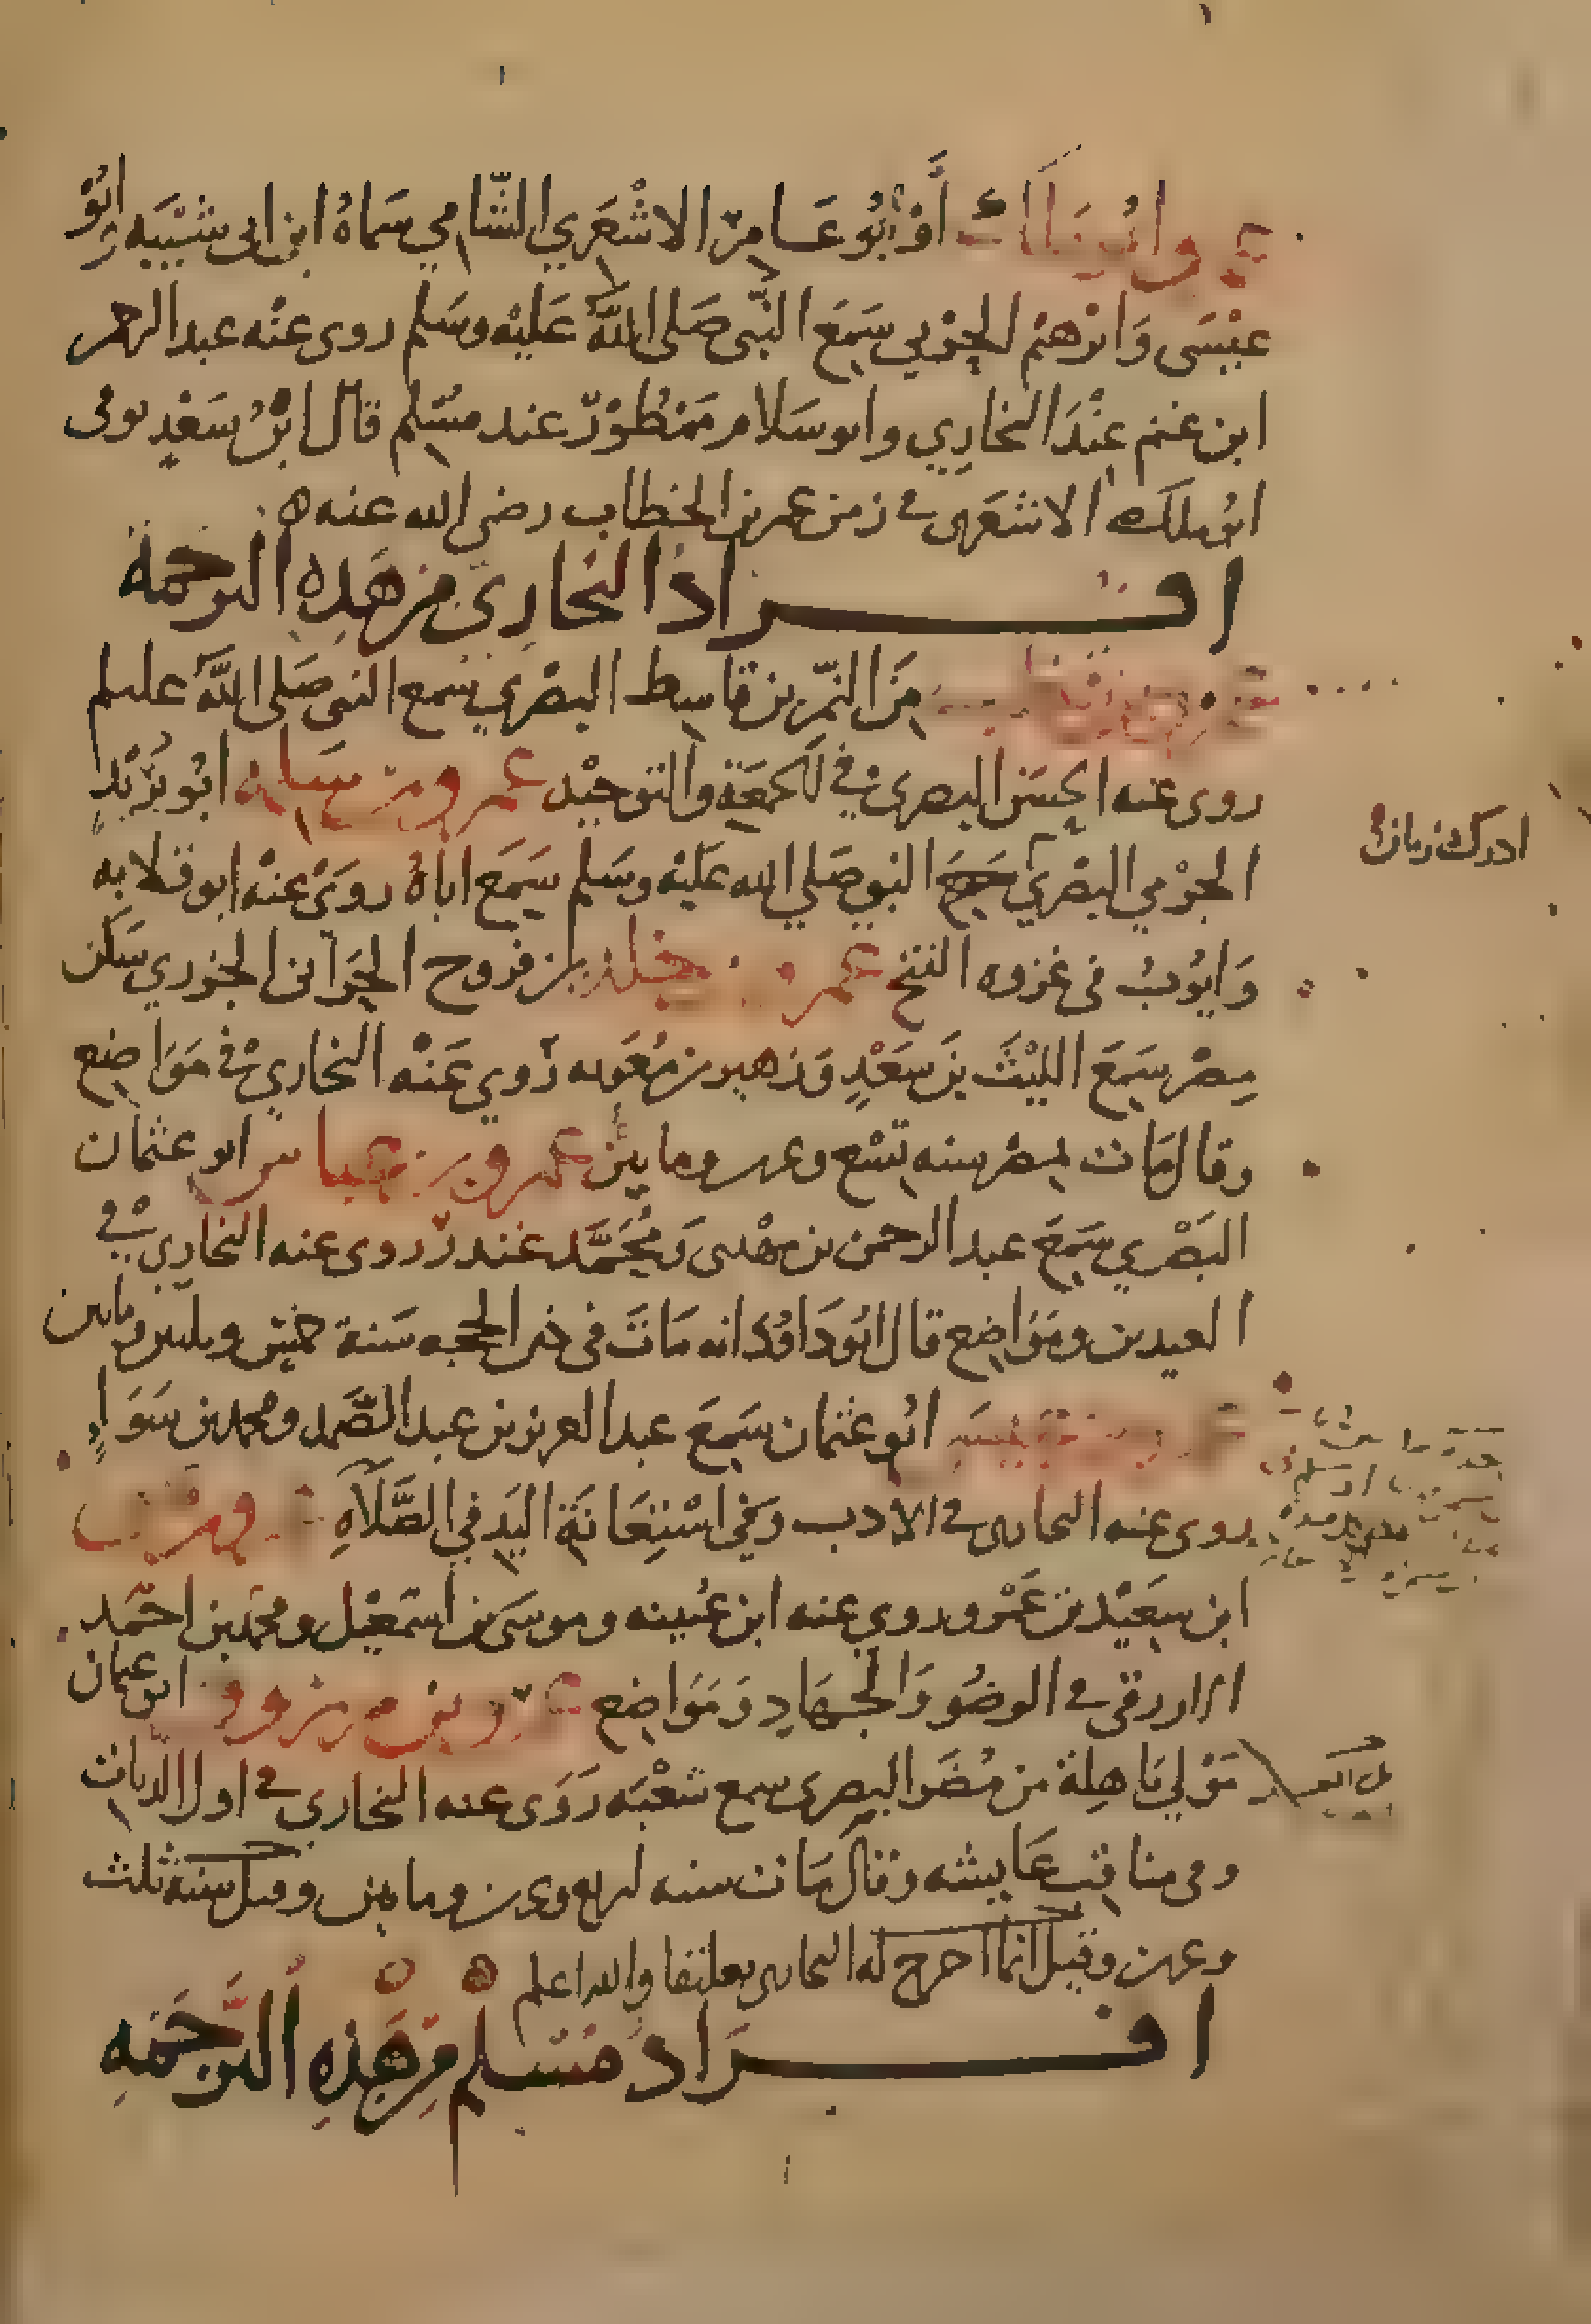 او ابو عامر الاشعري الشامي سماه ابن ابي شيبه وابو
عيسى وابرهيم الحربي سمع النبي صلى الله عليه وسلم روى عنه عبد الرحمن
ابن غنم عند البخاري وابو سلام ممطور عند مسلم قال ابن سعد توفي
ابو ملك الاشعري في زمن عمر بن الخطاب رضي الله عنه
افراد البخاري من هذه الترجمة
عمرو بن تغلب من النمر بن قاسط البصري سمع النبي صلى الله عليه وسلم
روى عنه الحسن البصري في الجمعة والتوحيد عمرو بن سلمه ابو بريد
الجرمي البصري النبي صلي الله عليه وسلم سمع اباه روى عنه ابو قلابه
ادرك زمان
وايوب في غزوه الفتح عمرو بن خلد بن فروح الحراني الجزري سكن
مصر سمع الليث بن سعد وزهير بن معويه روي عنه البخاري في مواضع
وقال مات بمصر سنه تسع وعشرين ومايتين عمرو بن عباس ابو عثمان
البصري سمع عبد الرحمن بن مهدى ومحمد غندر روى عنه البخاري في
العيدين ومواضع قال ابو داود انه مات في ذي الحجه سنة خمس وثلثين ومايتين
عمرو بن عيسى ابو عثمان سمع عبد العزيز بن عبد الصمد ومحمد بن سواء
روى عنه البخارى في الادب وفي استعانة اليد في الصلاة عمرو بن يحيى
ابن سعيد بن عمرو روي عنه ابن عيينه وموسى بن اسمعيل ومحمد بن احمد
الازرقي في الوضو والجهاد ومواضع عمرو بن مرزوق ابو عثمان
مولي باهلة من مضر البصرى سمع شعبه روى عنه البخاري في اول الديات
وفي مناقب عايشه وقال مات سنه اربع وعشرين ومايتين وقيل سنة ثلث
وعشرين وقيل انما اخرج له البخارى تعليقا والله اعلم
افراد مسلم من هذه الترجمه